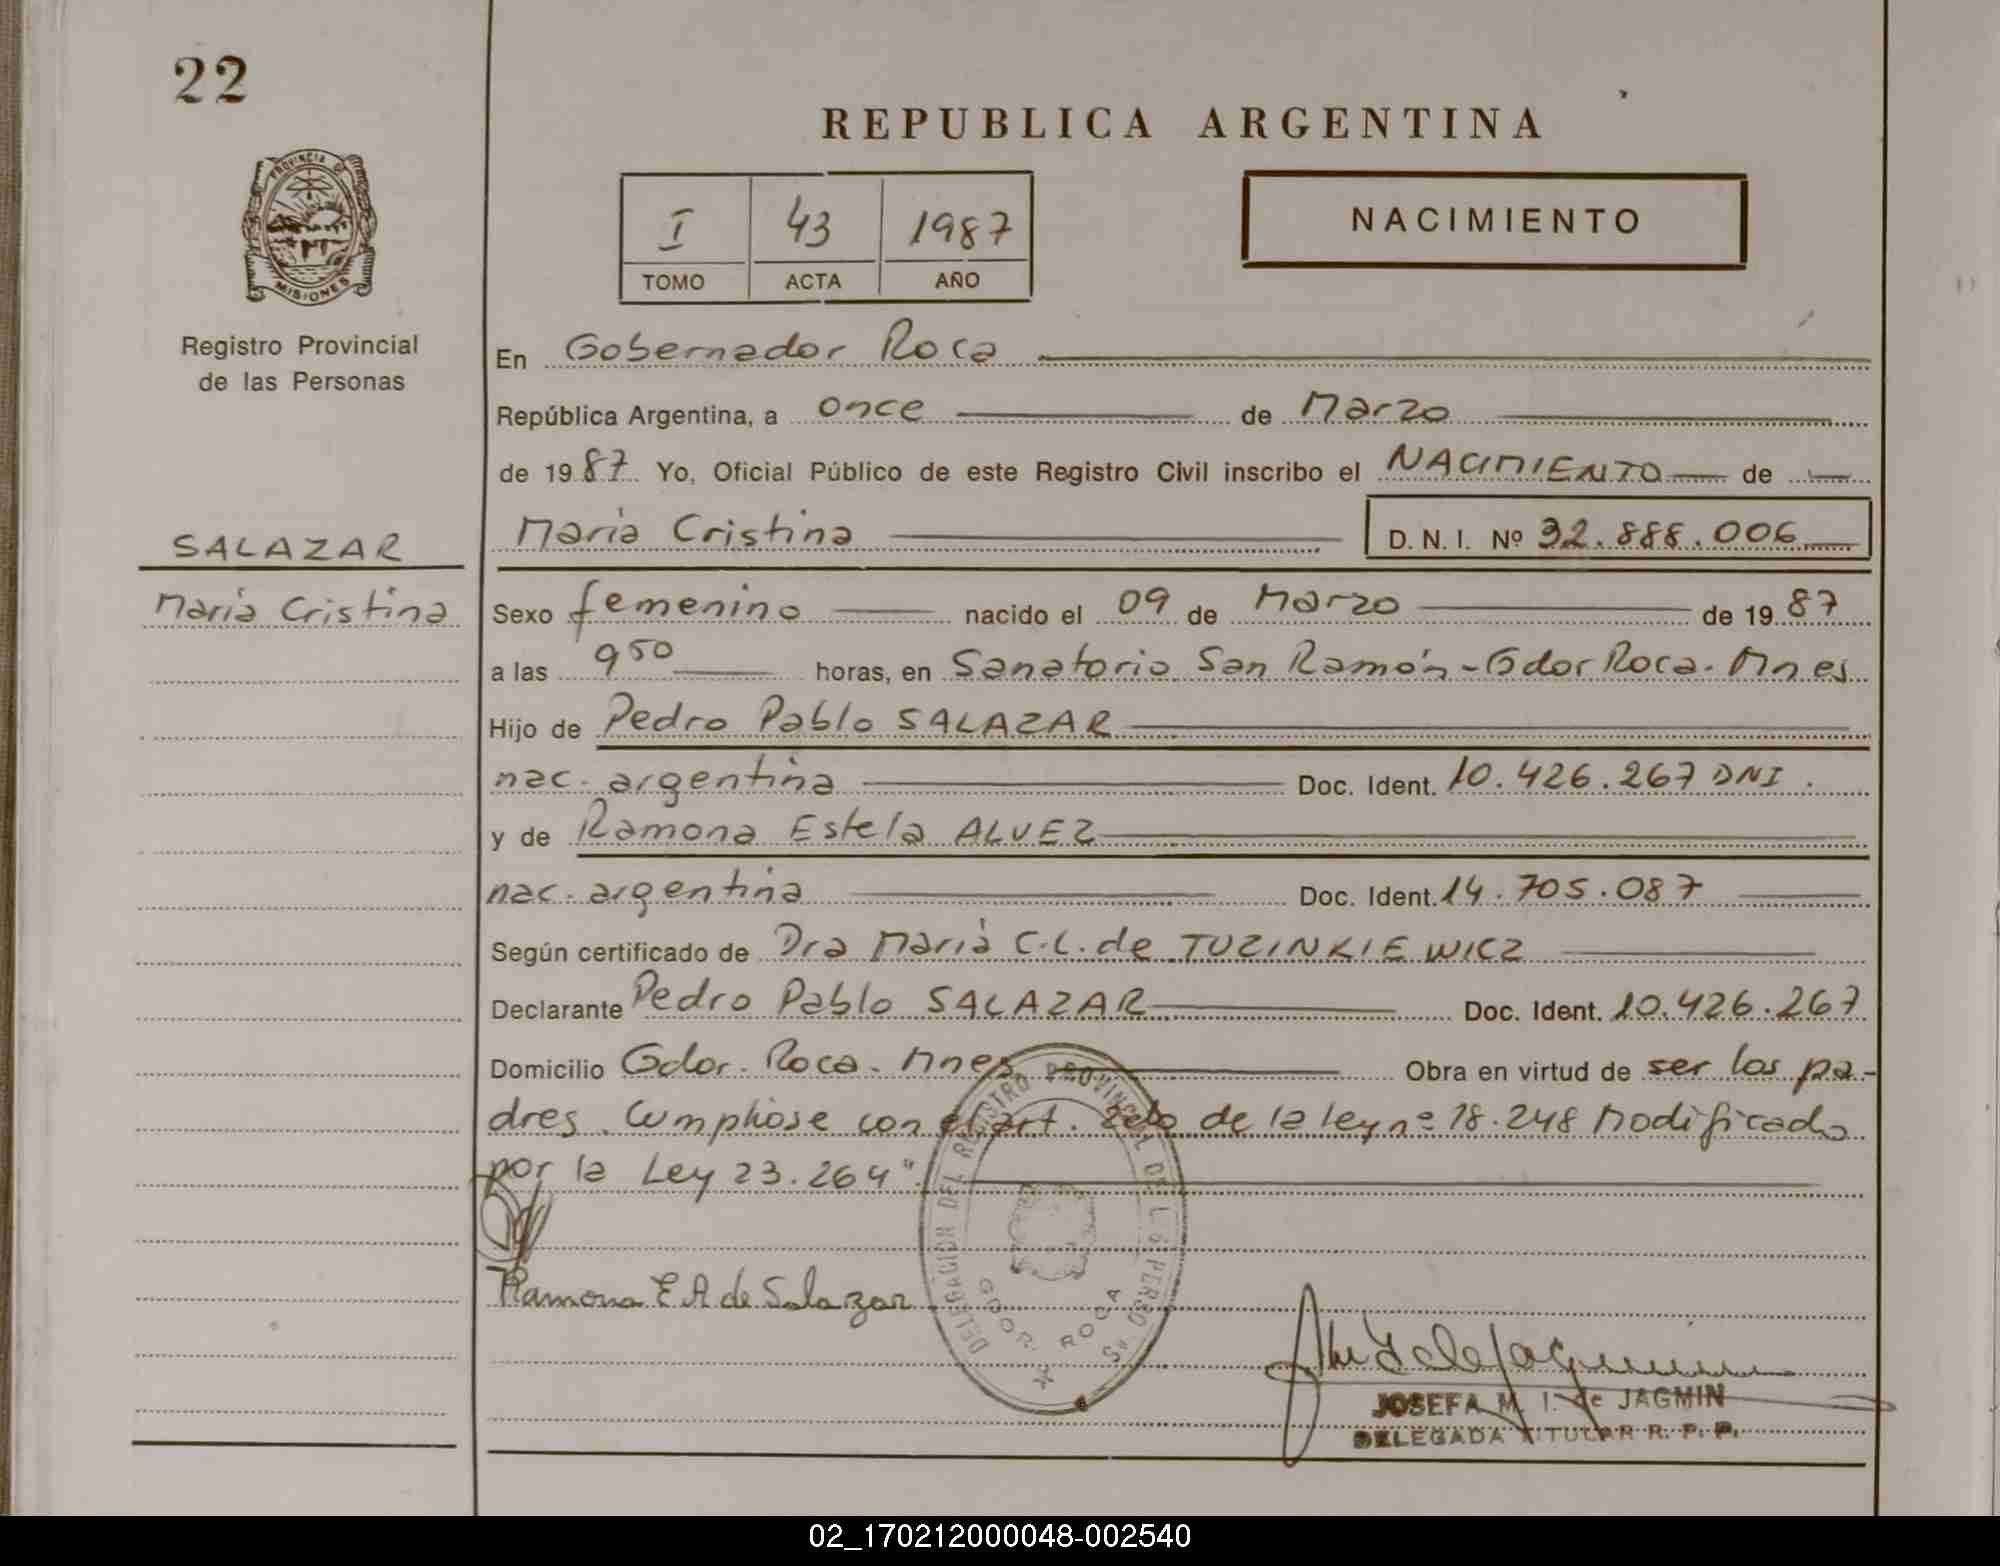 22
REPUBLICA ARGENTINA
PROVINCIA DE
MISIONES
Registro Provincial
de las Personas
I 43 1987
TOMO ACTA AÑO
NACIMIENTO
En Gobernador Roca
República Argentina, a once de Marzo
de 1987 Yo, Oficial Público de este Registro Civil inscribo el NACIMIENTO de
María Cristina D.N.I. Nº 32.888.006
SALAZAR
María Cristina
Sexo femenino nacido el 09 de Marzo de 1987
a las 9 50 horas, en Sanatorio San Ramón - Gdor Roca. Mnes
Hijo de Pedro Pablo SALAZAR
nac. argentina Doc. Ident. 10.426.267 DNI.
y de Ramona Estela ALVEZ
nac. argentina Doc. Ident. 14.705.087
Según certificado de Dra María C.L. de TUZINKIEWICZ
Declarante Pedro Pablo SALAZAR Doc. Ident. 10.426.267
Domicilio Gdor. Roca. Mnes Obra en virtud de ser los pa-
dres. Cumpliose con el art. de la ley nº 18.248 Modificado
por la Ley 23.264".
DELEGACION DEL REGISTRO PROVINCIAL DE LAS PERSONAS
GDOR. ROCA
Ramona E A de Salazar
JOSEFA M. I. de JAGMIN
DELEGADA TITULAR R. P. P.
02_170212000048-002540